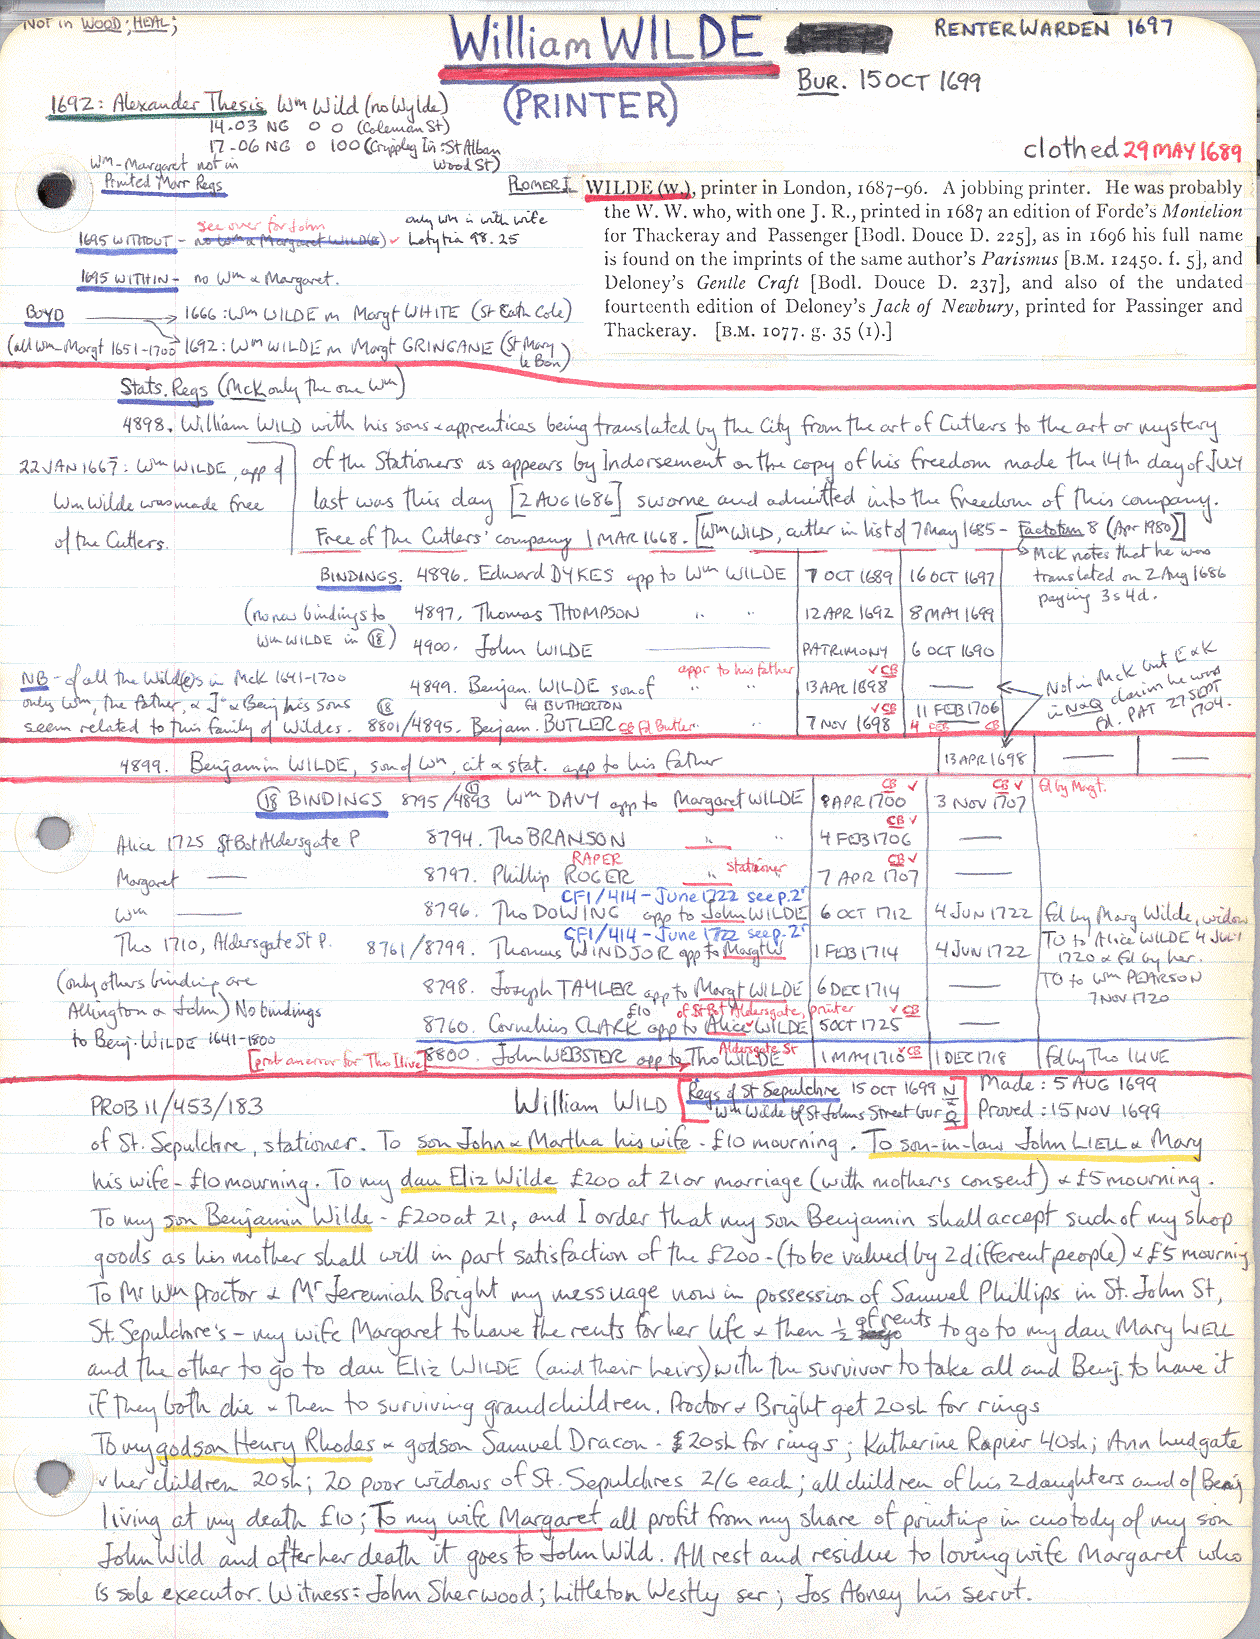 NOT in WOOD; HEAL;
William WILDE
RENTER WARDEN 1697
(PRINTER)
BUR. 15 OCT 1699
1692: Alexander Thesis Wm Wild (no Wylde)
14.03 NG 0 0 (Coleman St)
17.06 NG 0 100 (Crippleg In: St Alban
Wood St)
clothed 29 MAY 1689
Wm-Margaret not in
Printed Marr Regs
PLOMER I WILDE (W.), printer in London, 1687-96. A jobbing printer. He was probably
the W. W. who, with one J. R., printed in 1687 an edition of Forde's Montelion
for Thackeray and Passenger [Bodl. Douce D. 225], as in 1696 his full name
is found on the imprints of the same author's Parismus [B.M. 12450. f. 5], and
Deloney's Gentle Craft [Bodl. Douce D. 237], and also of the undated
fourteenth edition of Deloney's Jack of Newbury, printed for Passinger and
Thackeray. [B.M. 1077. g. 35 (1).]
see over for John
only Wm is with wife
1695 WITHOUT - no Wm & Margaret WILD(E) ✓ Letytia 98.25
1695 WITHIN - no Wm & Margaret.
BOYD → 1666: Wm WILDE m Margt WHITE (St Kath Cole)
(all Wm-Margt 1651-1700 1692: Wm WILDE m Margt GRINGANE (St Mary
le Bon)
Stats. Regs (McK only the one Wm)
4898. William WILD with his sons & apprentices being translated by the City from the art of Cutlers to the art or mystery
22 JAN 1667: Wm WILDE, app of
of the Stationers as appears by Indorsement on the copy of his freedom made the 14th day of July
Wm Wilde was made free
last was this day [2 AUG 1686] sworne and admitted into the freedom of this company.
of the Cutlers.
Free of the Cutlers' company 1 MAR 1668. [Wm WILD, cutler in list of 7 May 1685 - Factotum 8 (Apr 1980)]
McK notes that he was
translated on 2 Aug 1686
paying 3s 4d.
BINDINGS. 4896. Edward DYKES app to Wm WILDE 7 OCT 1689 16 OCT 1697
(no new bindings to 4897. Thomas THOMPSON " " 12 APR 1692 8 MAY 1699
Wm WILDE in (18)) 4900. John WILDE — PATRIMONY 6 OCT 1690
NB - of all the Wild(e)s in McK 1641-1700
appr to his father ✓ CB
4899. Benjam. WILDE son of " " 13 APR 1698 —
Not in McK but E & K
in N&Q claim he was
fd. PAT 27 SEPT
1704.
only Wm, the father, & Jn & Benj his sons (18) fd BUTHERTON ✓ CB 11 FEB 1706
seem related to this family of Wildes. 8801/4895. Benjam. BUTLER CB fd Butler " 7 NOV 1698 4 FEB CB
4899. Benjamin WILDE, son of Wm, cit & stat. app to his father 13 APR 1698 — —
(18) BINDINGS 8795/4893 Wm DAVY app to Margaret WILDE 8 APR 1700 CB ✓ 3 NOV 1707 CB ✓ fd by Margt.
Alice 1725 St Bot Aldersgate P 8794. Tho BRANSON " " 4 FEB 1706 CB ✓ —
Margaret — 8797. Phillip ROGER RAPER " stationer 7 APR 1707 CB ✓ —
CF1/414 - June 1722 see p.2
Wm — 8796. Tho DOWING app to John WILDE 6 OCT 1712 4 JUN 1722 fd by Marg Wilde, widow
CF1/414 - June 1722 see p.2
Tho 1710, Aldersgate St P. 8761/8799. Thomas WINDSOR app to Margt W 1 FEB 1714 4 JUN 1722 TO to Alice WILDE 4 JULY
1720 & fd by her.
(only others binding are 8798. Joseph TAYLER app to Margt WILDE 6 DEC 1714 — TO to Wm PEARSON
7 NOV 1720
Allington & John) No bindings £10 of St Bot Aldersgate, printer ✓ CB
8760. Cornelius CLARK app to Alice WILDE 5 OCT 1725 —
to Benj. WILDE 1641-1800
[prob an error for Tho Ilive] 8800. John WEBSTER app to Tho WILDE Aldersgate St 1 MAY 1710 ✓ CB 1 DEC 1718 fd by Tho ILIVE
PROB 11/453/183 William WILD [Regs of St Sepulchre 15 OCT 1699
Wm Wilde of St Johns Street bur] Made: 5 AUG 1699
Proved: 15 NOV 1699
of St. Sepulchre, stationer. To son John & Martha his wife - £10 mourning. To son-in-law John LIELL & Mary
his wife - £10 mourning. To my dau Eliz Wilde £200 at 21 or marriage (with mother's consent) & £5 mourning.
To my son Benjamin Wilde - £200 at 21, and I order that my son Benjamin shall accept such of my shop
goods as his mother shall will in part satisfaction of the £200 - (to be valued by 2 different people) & £5 mourning
To Mr Wm Proctor & Mr Jeremiah Bright my messuage now in possession of Samuel Phillips in St. John St,
St. Sepulchre's - my wife Margaret to have the rents for her life & then ½ of rents to go to my dau Mary LIELL
and the other to go to dau Eliz WILDE (and their heirs) with the survivor to take all and Benj. to have it
if they both die & then to surviving grandchildren. Proctor & Bright get 20sh for rings
To my godson Henry Rhodes & godson Samuel Dracon - 20sh for rings; Katherine Rapier 40sh; Ann Ludgate
& her children 20sh; 20 poor widows of St. Sepulchres 2/6 each; all children of his 2 daughters and of Benj
living at my death £10; To my wife Margaret all profit from my share of printing in custody of my son
John Wild and after her death it goes to John Wild. All rest and residue to loving wife Margaret who
is sole executor. Witness: John Sherwood; Littleton Westly ser; Jos Abney his servt.